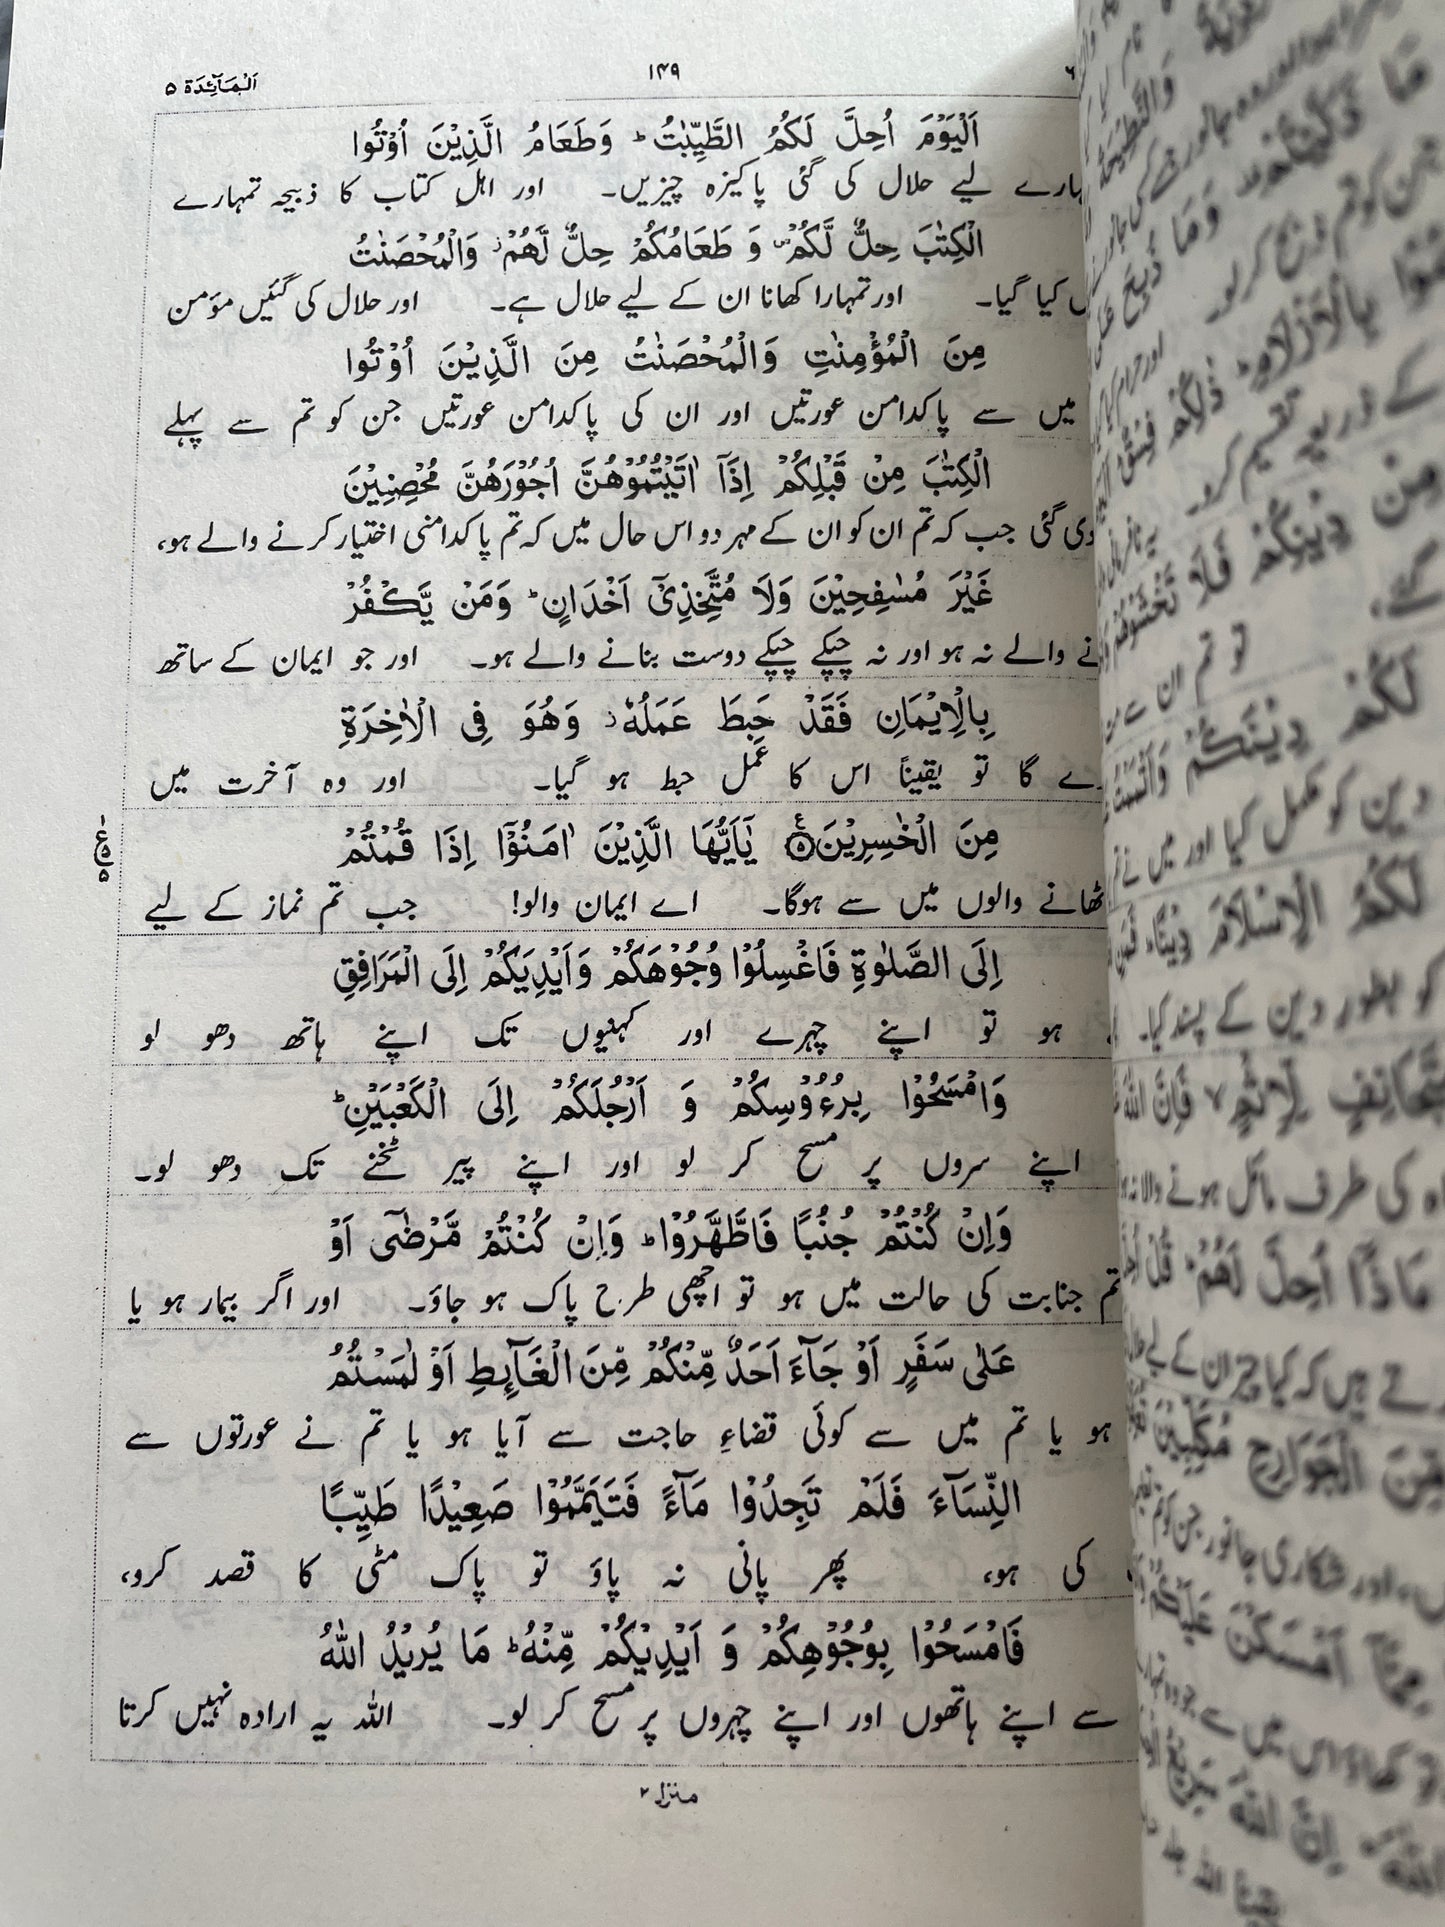 اَلْمَآئِدَة ۵
۱۴۹
۶
اَلْيَوْمَ اُحِلَّ لَكُمُ الطَّيِّبٰتُ ؕ وَطَعَامُ الَّذِيْنَ اُوْتُوا
لیے حلال کی گئی پاکیزہ چیزیں۔ اور اہلِ کتاب کا ذبیحہ تمہارے
الْكِتٰبَ حِلٌّ لَّكُمْ ۪ وَ طَعَامُكُمْ حِلٌّ لَّهُمْ ؗ وَالْمُحْصَنٰتُ
کیا گیا۔ اور تمہارا کھانا ان کے لیے حلال ہے۔ اور حلال کی گئیں مؤمن
مِنَ الْمُؤْمِنٰتِ وَالْمُحْصَنٰتُ مِنَ الَّذِيْنَ اُوْتُوا
میں سے پاکدامن عورتیں اور ان کی پاکدامن عورتیں جن کو تم سے پہلے
الْكِتٰبَ مِنْ قَبْلِكُمْ اِذَاۤ اٰتَيْتُمُوْهُنَّ اُجُوْرَهُنَّ مُحْصِنِيْنَ
دی گئی جب کہ تم ان کو ان کے مہر دو اس حال میں کہ تم پاکدامنی اختیار کرنے والے ہو،
غَيْرَ مُسٰفِحِيْنَ وَلَا مُتَّخِذِيْۤ اَخْدَانٍ ؕ وَمَنْ يَّكْفُرْ
والے نہ ہو اور نہ چپکے چپکے دوست بنانے والے ہو۔ اور جو ایمان کے ساتھ
بِالْاِيْمَانِ فَقَدْ حَبِطَ عَمَلُهٗ ؗ وَهُوَ فِي الْاٰخِرَةِ
گا تو یقیناً اس کا عمل حبط ہو گیا۔ اور وہ آخرت میں
مِنَ الْخٰسِرِيْنَ ۝۵ يٰۤاَيُّهَا الَّذِيْنَ اٰمَنُوْۤا اِذَا قُمْتُمْ
والوں میں سے ہوگا۔ اے ایمان والو! جب تم نماز کے لیے
اِلَى الصَّلٰوةِ فَاغْسِلُوْا وُجُوْهَكُمْ وَاَيْدِيَكُمْ اِلَى الْمَرَافِقِ
ہو تو اپنے چہرے اور کہنیوں تک اپنے ہاتھ دھو لو
وَامْسَحُوْا بِرُءُوْسِكُمْ وَ اَرْجُلَكُمْ اِلَى الْكَعْبَيْنِ ؕ
اپنے سروں پر مسح کر لو اور اپنے پیر ٹخنے تک دھو لو۔
وَاِنْ كُنْتُمْ جُنُبًا فَاطَّهَّرُوْا ؕ وَاِنْ كُنْتُمْ مَّرْضٰۤى اَوْ
تم جنابت کی حالت میں ہو تو اچھی طرح پاک ہو جاؤ۔ اور اگر بیمار ہو یا
عَلٰى سَفَرٍ اَوْ جَآءَ اَحَدٌ مِّنْكُمْ مِّنَ الْغَآئِطِ اَوْ لٰمَسْتُمُ
ہو یا تم میں سے کوئی قضاءِ حاجت سے آیا ہو یا تم نے عورتوں سے
النِّسَآءَ فَلَمْ تَجِدُوْا مَآءً فَتَيَمَّمُوْا صَعِيْدًا طَيِّبًا
کی ہو، پھر پانی نہ پاؤ تو پاک مٹی کا قصد کرو،
فَامْسَحُوْا بِوُجُوْهِكُمْ وَ اَيْدِيْكُمْ مِّنْهُ ؕ مَا يُرِيْدُ اللّٰهُ
سے اپنے ہاتھوں اور اپنے چہروں پر مسح کر لو۔ اللہ یہ ارادہ نہیں کرتا
منزل ۲
مِنْ دِيْنِكُمْ فَلَا تَخْشَوْهُمْ
تو تم ان سے
لَكُمْ دِيْنَكُمْ
دین کو مکمل کیا اور میں نے
لَكُمُ الْاِسْلَامَ دِيْنًا ؕ
کو بطور دین کے پسند کیا۔
لِّاِثْمٍ ۙ فَاِنَّ اللّٰهَ
کی طرف مائل ہونے والا نہ
مَاذَاۤ اُحِلَّ لَهُمْ ؕ قُلْ
ہیں کہ کیا چیز ان کے لیے
مِّنَ الْجَوَارِحِ مُكَلِّبِيْنَ
اور شکاری جانور جن کو تم
مِمَّاۤ اَمْسَكْنَ عَلَيْكُمْ
اِنَّ اللّٰهَ سَرِيْعُ